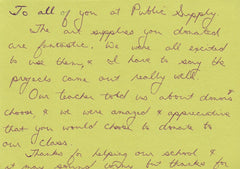 To all of you at Public Supply.
The art supplies you donated
are fantastic. We were all excited
to use them, & I have to say the
projects came out really well.
Our teacher told us about donors
choose, & we were amazed & appreciative
that you would choose to donate to
our class.
Thanks for helping our school &
it may sound but thanks for